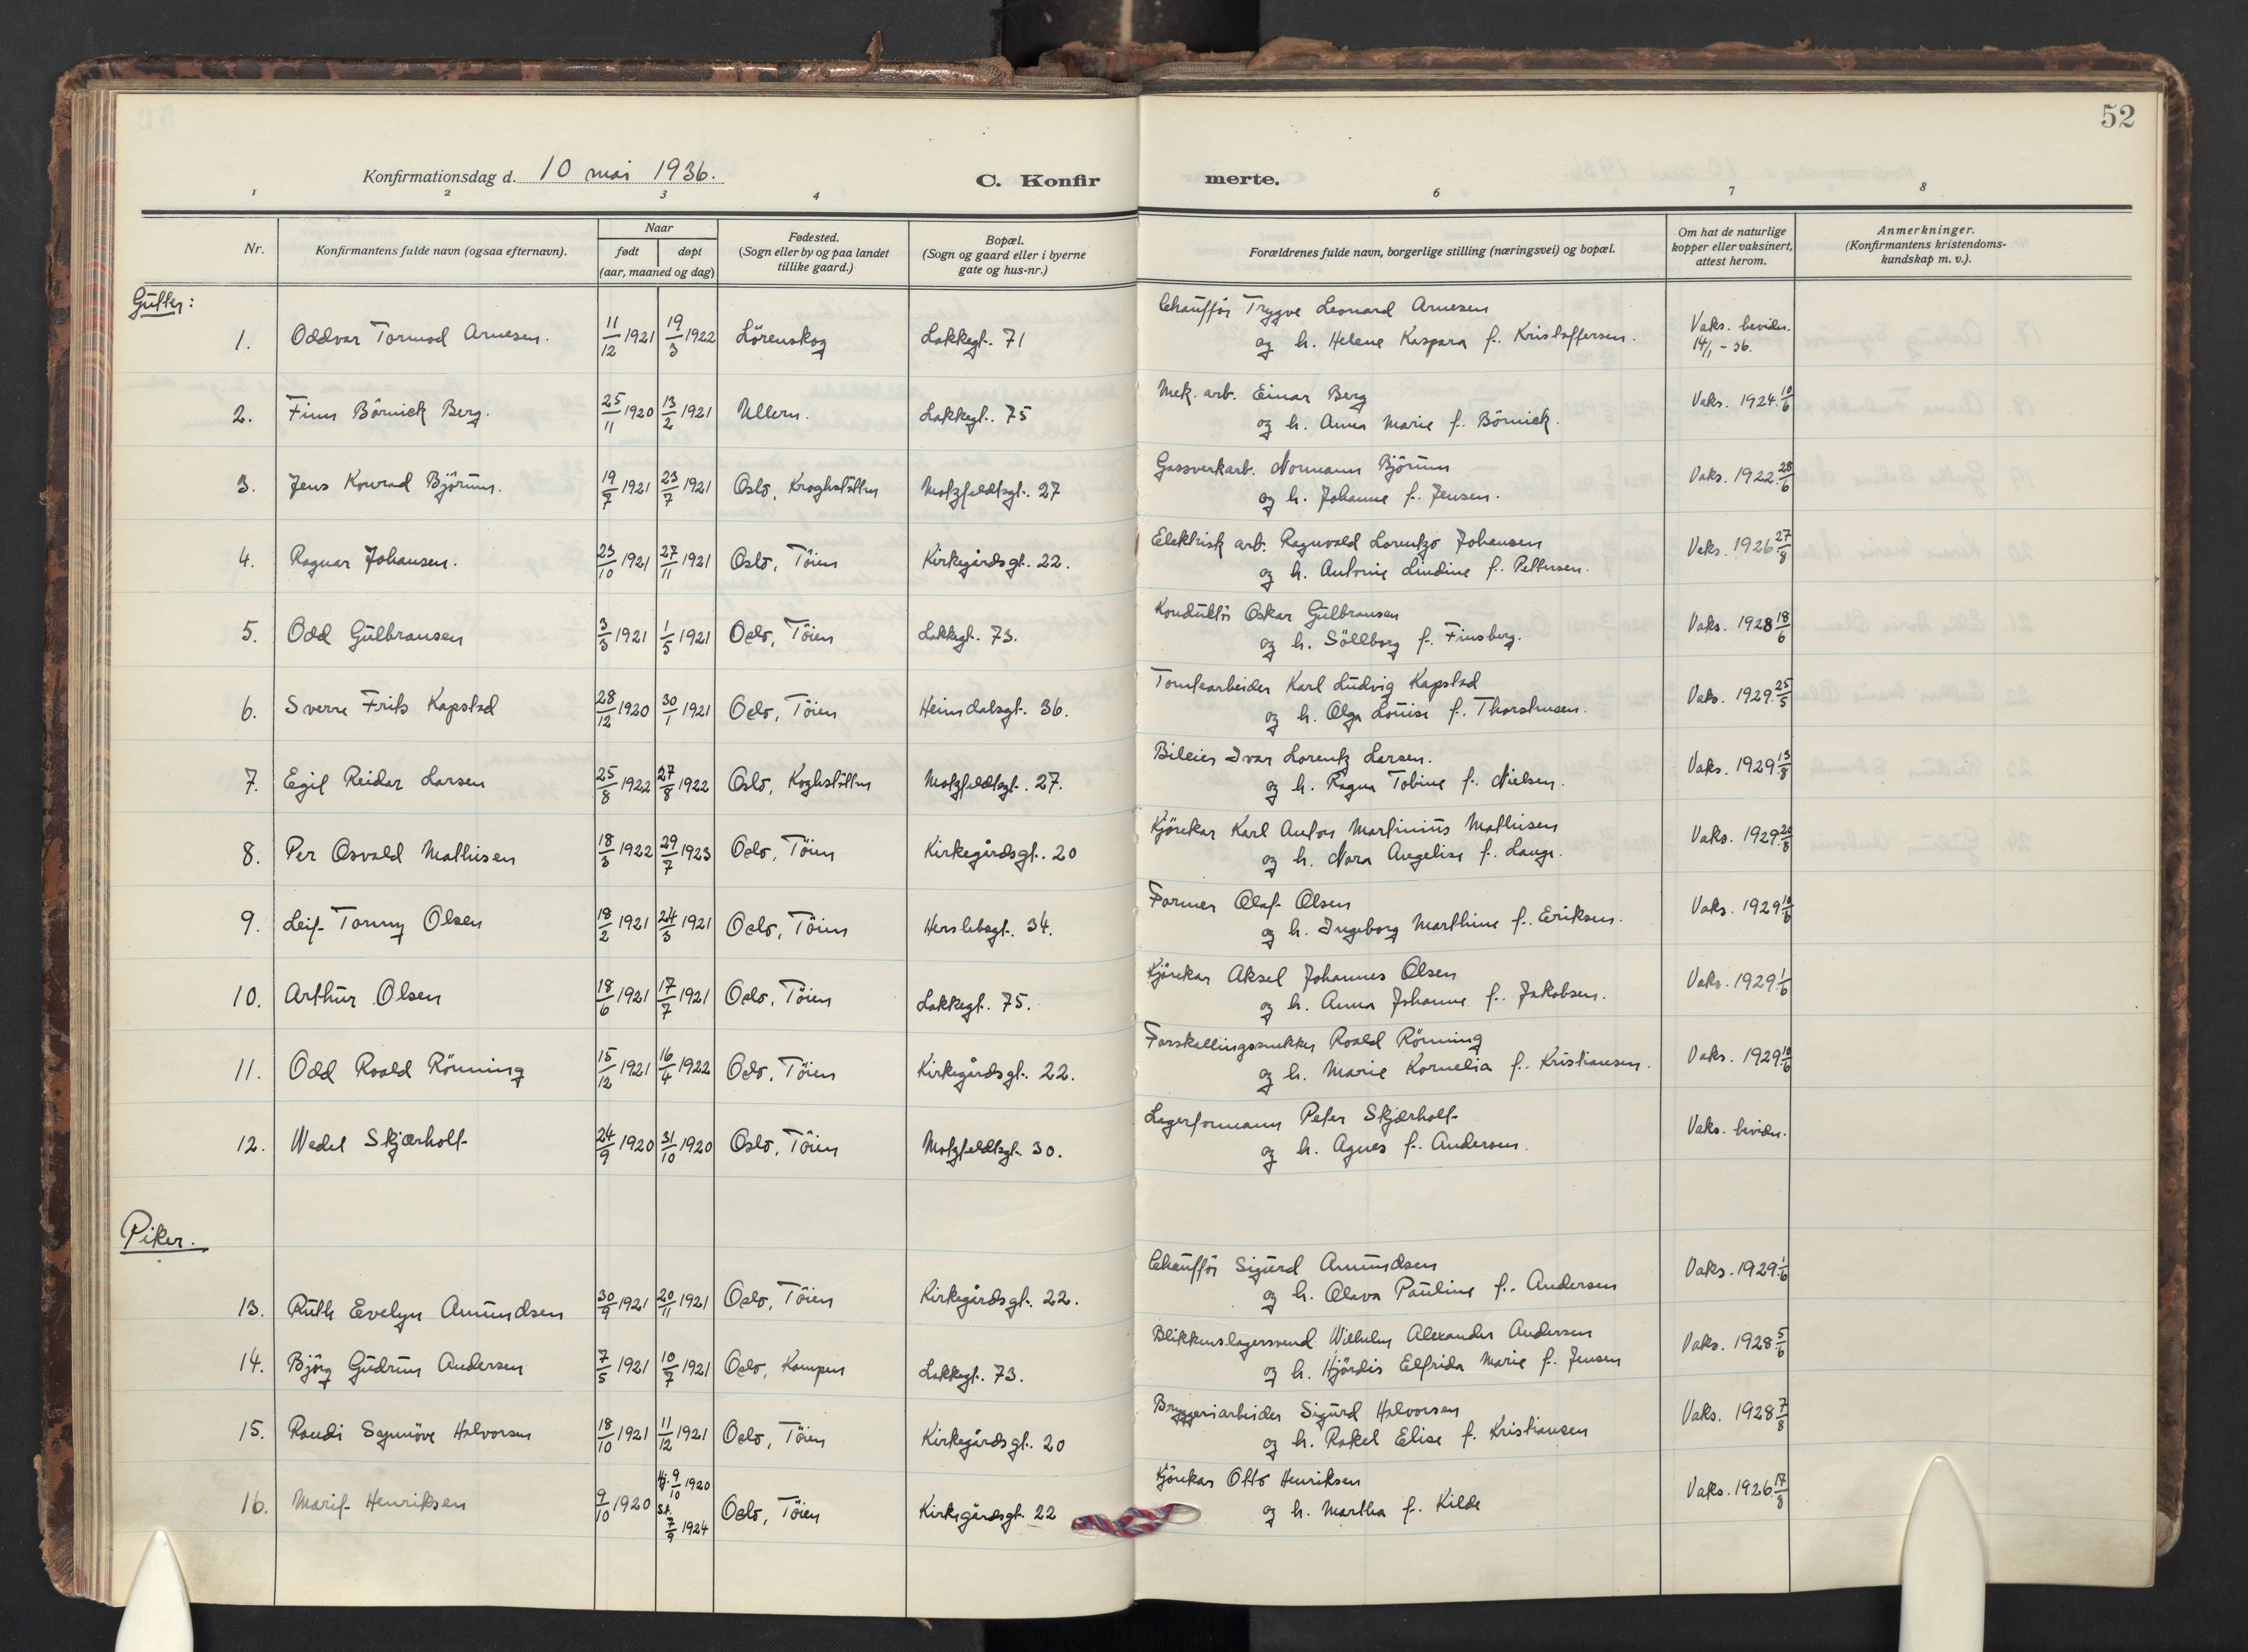 52
Konfirmationsdag d. 10 mai 1936.
C. Konfirmerte.
1 2 3 4 6 7 8
Nr.
Konfirmantens fulde navn (ogsaa efternavn).
Naar
født døpt
(aar, maaned og dag)
Fødested.
(Sogn eller by og paa landet
tillike gaard.)
Bopæl.
(Sogn og gaard eller i byerne
gate og hus-nr.)
Forældrenes fulde navn, borgerlige stilling (næringsvei) og bopæl.
Om hat de naturlige
kopper eller vaksinert,
attest herom.
Anmerkninger.
(Konfirmantens kristendoms-
kundskap m. v.).
Gutter:
1. Oddvar Tormod Arnesen. 11/12 1921 19/3 1922 Lörenskog Lakkegt. 71 Chaufför Trygve Leonard Arnesen
og h. Helene Kaspara f. Kristoffersen. Vaks. bevidn.
14/1 - 36.
2. Finn Börnick Berg. 25/11 1920 13/2 1921 Ullern. Lakkegt. 75 Mek. arb. Einar Berg
og h. Anna Marie f. Börnick. Vaks. 1924 10/6
3. Jens Konrad Björum. 19/7 1921 23/7 1921 Oslo, Kroghstötten Motzfeldtsgt. 27 Gassverkarb. Normann Björum
og h. Johanne f. Jensen. Vaks. 1922 28/6
4. Ragnar Johansen. 23/10 1921 27/11 1921 Oslo, Töien Kirkegårdsgt. 22. Elektrisk arb. Ragnvald Lorentzo Johansen
og h. Antonie Lindine f. Pettersen. Vaks. 1926 27/8
5. Odd Gulbransen 3/3 1921 1/5 1921 Oslo, Töien Lakkegt. 73. Konduktör Oskar Gulbransen
og h. Söllborg f. Finsberg. Vaks. 1928 18/6
6. Sverre Frits Kapstad 28/12 1920 30/1 1921 Oslo, Töien Heimdalsgt. 36. Tomtearbeider Karl Ludvig Kapstad
og h. Olga Louise f. Thorstensen. Vaks. 1929. 25/5
7. Egil Reidar Larsen 25/8 1922 27/8 1922 Oslo, Koghstötten Motzfeldtsgt. 27. Bileier Ivar Lorentz Larsen.
og h. Ragna Tobine f. Nielsen. Vaks. 1929 13/8
8. Per Osvald Mathisen 18/3 1922 29/7 1923 Oslo, Töien Kirkegårdsgt. 20 Kjörekar Karl Anton Martinius Mathisen
og h. Nora Angelise f. Lange. Vaks. 1929 20/8
9. Leif Tonny Olsen 18/2 1921 24/3 1921 Oslo, Töien Herslebsgt. 34. Former Olaf Olsen
og h. Ingeborg Marthine f. Eriksen. Vaks. 1929 10/6
10. Arthur Olsen 18/6 1921 17/7 1921 Oslo, Töien Lakkegt. 75. Kjörekar Aksel Johannes Olsen
og h. Anna Johanne f. Jakobsen. Vaks. 1929 1/6
11. Odd Roald Rönning 15/12 1921 16/4 1922 Oslo, Töien Kirkegårdsgt. 22. Forskallingssnekker Roald Rönning
og h. Marie Kornelia f. Kristiansen. Vaks. 1929 10/6
12. Wedel Skjærholt 24/9 1920 31/10 1920 Oslo, Töien Motzfeldtsgt. 30. Lagerformann Peter Skjærholt
og h. Agnes f. Andersen. Vaks. bevidn.
Piker.
13. Ruth Evelyn Amundsen 30/9 1921 20/11 1921 Oslo, Töien Kirkegårdsgt. 22. Chaufför Sigurd Amundsen
og h. Olava Pauline f. Andersen Vaks. 1929 1/6
14. Björg Gudrun Andersen 7/5 1921 10/7 1921 Oslo, Kampen Lakkegt. 73. Blikkenslagersvend Wilhelm Alexander Andersen
og h. Hjördis Elfrida Marie f. Jensen Vaks. 1928 5/6
15. Randi Synnöve Halvorsen 18/10 1921 11/12 1921 Oslo, Töien Kirkegårdsgt. 20 Bryggeriarbeider Sigurd Halvorsen
og h. Rakel Elise f. Kristiansen Vaks. 1928 7/8
16. Marif Henriksen 9/10 1920 Hj. 9/10 1920
St. 7/9 1924 Oslo, Töien Kirkegårdsgt. 22 Kjörekar Otto Henriksen
og h. Martha f. Kilde Vaks. 1926 17/8